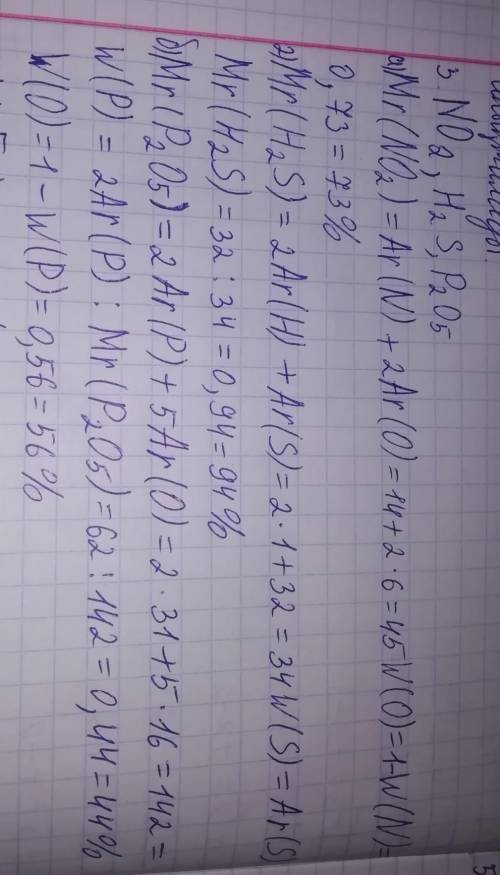 3. NO2, H2S, P2O5
а) Mr(NO2) = Ar(N) + 2Ar(O) = 14 + 2 · 6 = 45 W(O) = 1 - W(N) =
0,73 = 73%
2) Mr(H2S) = 2Ar(H) + Ar(S) = 2 · 1 + 32 = 34 W(S) = Ar(S)
Mr(H2S) = 32 : 34 = 0,94 = 94%
б) Mr(P2O5) = 2Ar(P) + 5Ar(O) = 2 · 31 + 5 · 16 = 142 =
W(P) = 2Ar(P) : Mr(P2O5) = 62 : 142 = 0,44 = 44%
W(O) = 1 - W(P) = 0,56 = 56%